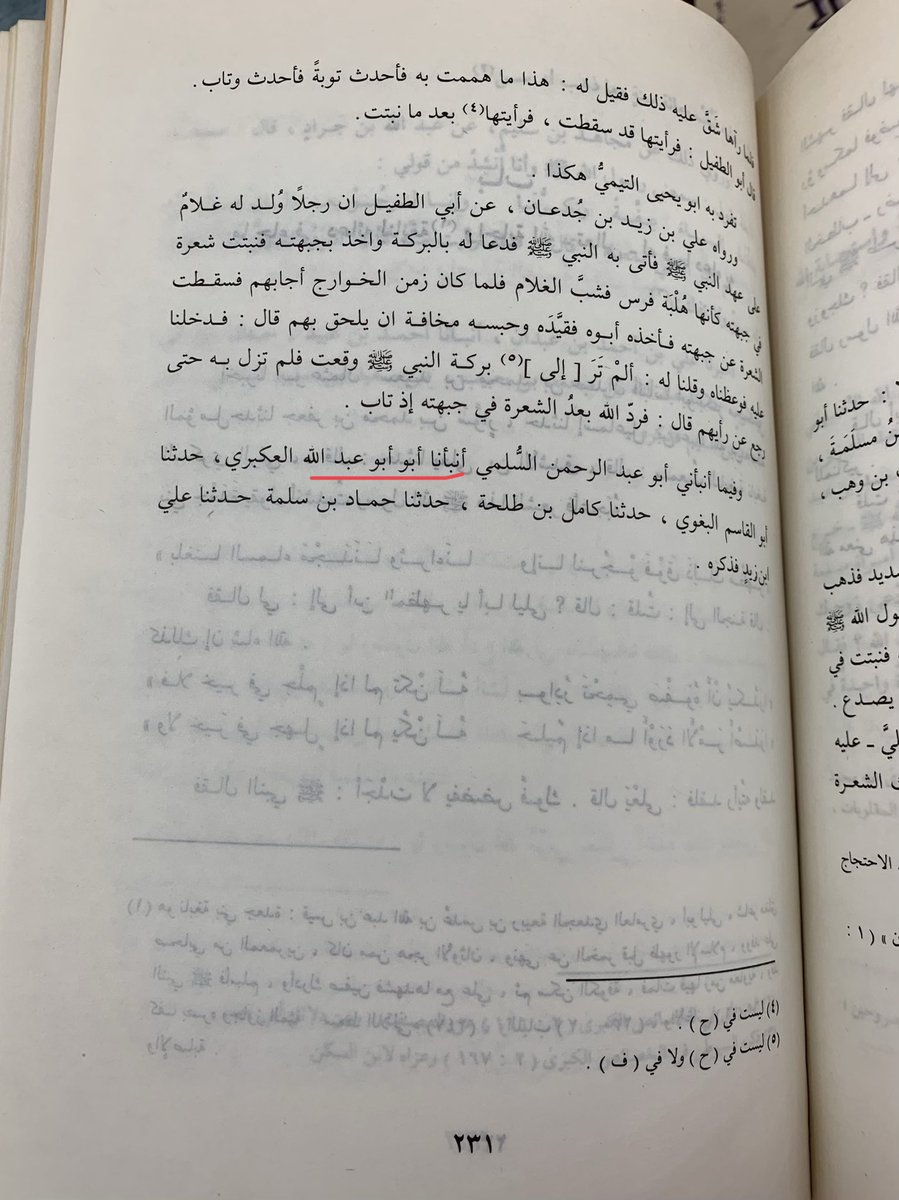 فلما رآها شَقَّ عليه ذلك فقيل له : هذا ما هممت به فأحدث توبةً فأحدث وتاب .
قال أبو الطفيل : فرأيتها قد سقطت ، فرأيتها(٤) بعد ما نبتت .
تفرد به ابو يحيى التيميُّ هكذا .
ورواه علي بن زيد بن جُدعان ، عن أبي الطفيل ان رجلًا وُلد له غلامٌ
على عهد النبي ﷺ فأتى به النبي ﷺ فدعا له بالبركة واخذ بجبهته فنبتت شعرة
في جبهته كأنها هُلْبَة فرس فشبَّ الغلام فلما كان زمن الخوارج أجابهم فسقطت
الشعرة عن جبهته فأخذه أبوه فقيَّدَه وحبسه مخافة ان يلحق بهم قال : فدخلنا
عليه فوعظناه وقلنا له : ألمْ تَرَ [ إلى ](٥) بركة النبي ﷺ وقعت فلم تزل به حتى
رجع عن رأيهم قال : فردّ الله بعدُ الشعرة في جبهته إذ تاب .
وفيما أنبأني أبو عبد الرحمن السُّلمي أنبأنا أبو أبو عبد الله العكبري ، حدثنا
أبو القاسم البغوي ، حدثنا كامل بن طلحة ، حدثنا حماد بن سلمة حدثنا علي
ابن زيدٍ فذكره .
(٤) ليست في ( ح ) .
(٥) ليست في ( ح ) ولا في ( ف ) .
٢٣١
: حدثنا أبو
بنُ مسلَمَةَ ،
بن وهب ،
ديد فذهب
ول الله ﷺ
فنبتت في
يصدع .
ليَّ ـ عليه
ت الشعرة
الاحتجاج
ن » ( ١ :